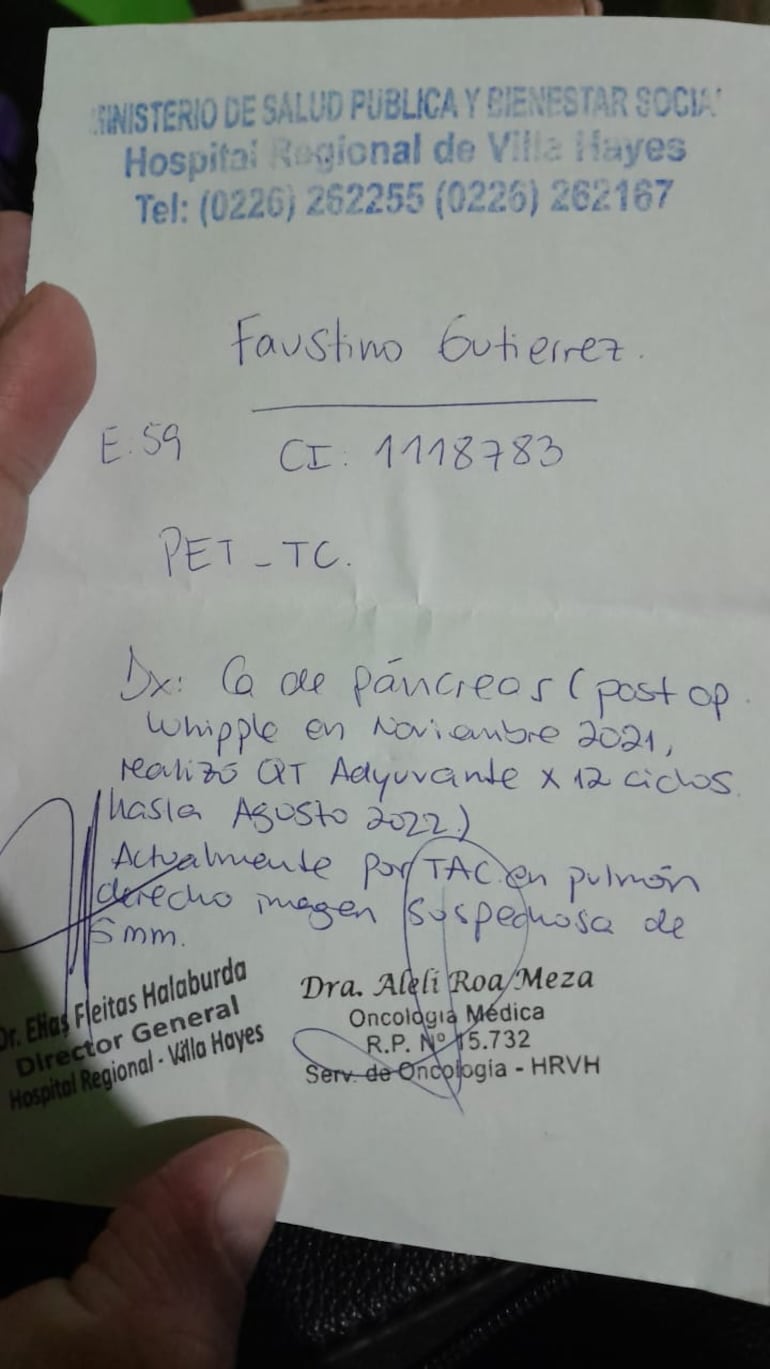 MINISTERIO DE SALUD PUBLICA Y BIENESTAR SOCIA
Hospital Regional de Villa Hayes
Tel: (0226) 262255 (0226) 262167
Faustino Gutierrez.
E: 59 CI: 1118783
PET - TC.
Dx: Ca de páncreas (post op.
Whipple en Noviembre 2021,
realizó QT Adyuvante x 12 ciclos.
hasta Agosto 2022)
Actualmente por TAC en pulmón
derecho imagen sospechosa de
mm.
Dr. Elias Fleitas Halaburda
Director General
Hospital Regional - Villa Hayes
Dra. Alelí Roa Meza
Oncología Médica
R.P. Nº 15.732
Serv. de Oncología - HRVH